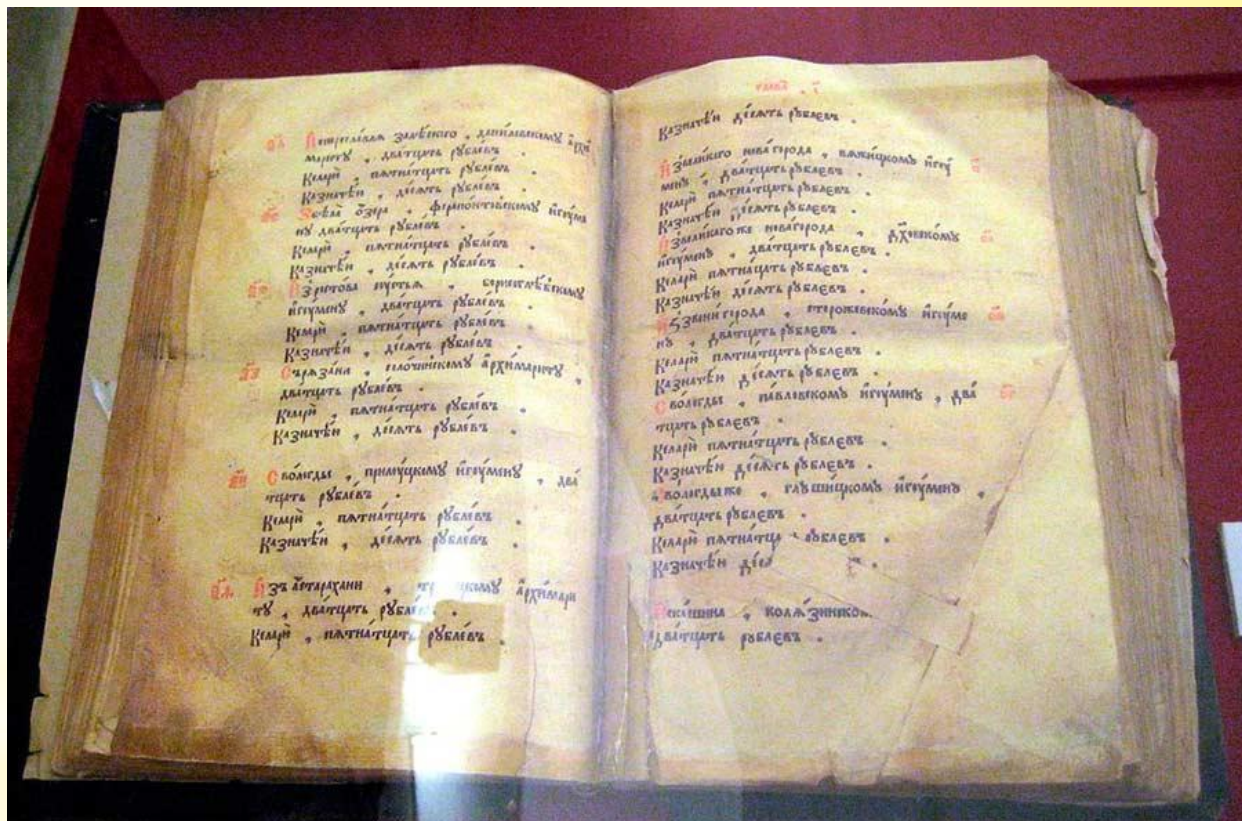 Переславля залѣского , даниловскому а҆рхи
мариту , два́тцать рꙋбле́въ .
Келарю̀ , пятна́тцать рꙋбле́въ .
Казначѣ́ю , де́сять рꙋбле́въ .
Збѣла ѻ҆́зера , ферапонтовскому и҆гꙋме
нꙋ два́тцать рꙋбле́въ .
Келарю̀ , пятна́тцать рꙋбле́въ .
Казначѣ́ю , де́сять рꙋбле́въ .
Из̾ростова ꙋстья , борисоглѣ́бскомꙋ
и҆гꙋменꙋ , два́тцать рꙋбле́въ .
Келарю̀ , пятна́тцать рꙋбле́въ .
Казначѣ́ю , де́сять рꙋбле́въ .
Сьрязани , солочи́нскомꙋ а҆рхимаритꙋ ,
два́тцать рꙋбле́въ .
Келарю̀ , пятна́тцать рꙋбле́въ .
Казначѣ́ю , де́сять рꙋбле́въ .
Своло́гды , прилꙋцкомꙋ и҆гꙋменꙋ , два́
тцать рꙋбле́въ .
Келарю̀ , пятна́тцать рꙋбле́въ .
Казначѣ́ю , де́сять рꙋбле́въ .
Изъ а҆старахани , а҆рхимари
тꙋ , два́тцать рꙋбле́въ .
Келарю̀ , пятна́тцать рꙋбле́въ .
глава̀ .
Казначѣ́ю де́сять рꙋбле́въ .
Извели́каго нова́города , вяжицкомꙋ и҆гꙋ
менꙋ , два́тцать рꙋбле́въ .
Келарю̀ пятна́тцать рꙋбле́въ .
Казначѣ́ю де́сять рꙋбле́въ .
Извели́каго же нова́города , дх҃овскомꙋ
и҆гꙋменꙋ , два́тцать рꙋбле́въ .
Келарю̀ пятна́цать рꙋбле́въ .
Казначѣ́ю де́сять рꙋбле́въ .
Изъзвени́города , сторожевскомꙋ и҆гꙋме
нꙋ , два́тцать рꙋбле́въ .
Келарю̀ пятна́тцать рꙋбле́въ .
Казначѣ́ю де́сять рꙋбле́въ .
Своло́гды , па́вловскомꙋ и҆гꙋменꙋ , два́
тцать рꙋбле́въ .
Келарю̀ пятна́тцать рꙋбле́въ .
Казначѣ́ю де́сять рꙋбле́въ .
Своло́гды же , глꙋши́цкомꙋ и҆гꙋменꙋ ,
два́тцать рꙋбле́въ .
Келарю̀ рꙋбле́въ .
Казначѣ́ю
Искашина , колязинском
два́тцать рꙋбле́въ .